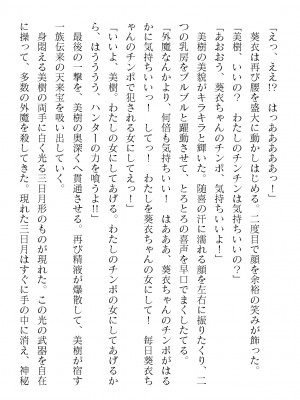 「えっ、ええ!?　はっああああっ！」
葵衣は再び腰を盛大に動かしはじめる。二度目で顔を余裕の笑みが飾った。
「美樹、いいの？　わたしのチンチンは気持ちいいの？」
「あおおう、葵衣ちゃんのチンポ、気持ちいいよ！」
美樹の美貌がキラキラと輝いた。随喜の汗に濡れる顔を左右に振りたくり、二
つの乳房をブルブルと躍動させて、とろとろの喜声を早口でまくしたてる。
「外魔なんかより、何倍も気持ちいい！　はああ、葵衣ちゃんのチンポがはる
かに気持ちいいっ！　してっ！　わたしを葵衣ちゃんの女にして！　毎日葵衣ち
ゃんのチンポで犯される女にしてえっ！」
「いいよ、美樹。わたしの女にしてあげる。わたしのチンポの女にしてあげるか
ら、はうううう、ハンターの力を喰うよ!!」
最後の一撃を、美樹の奥深くへ貫通させる。再び精液が爆散して、美樹が宿す
一族伝来の天来宝を吸い出していく。
身悶える美樹の両手に白く光る三日月形のものが現れた。この光の武器を自在
に操って、多数の外魔を殺してきた。現れた三日月はすぐに手の中に消え、神秘